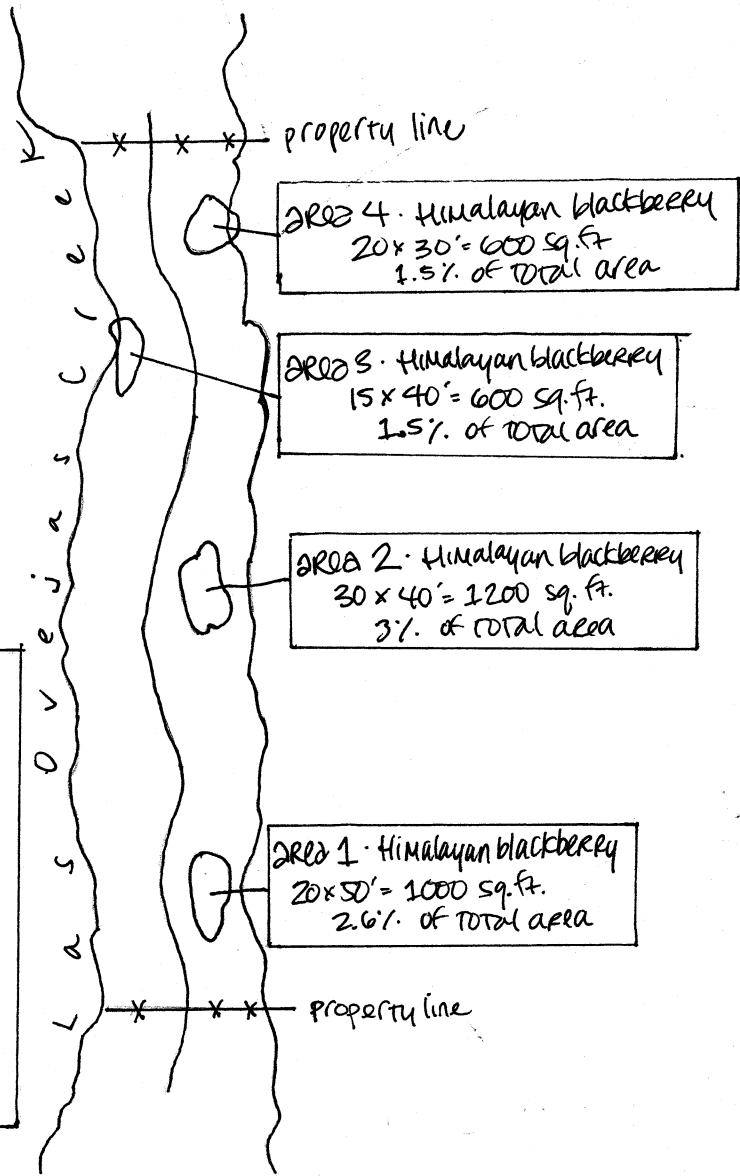 property line
area 4. Himalayan blackberry
20 x 30'= 600 sq.ft
1.5% of Total area
area 3. Himalayan blackberry
15 x 40'= 600 sq.ft.
1.5% of Total area
area 2. Himalayan blackberry
30 x 40'= 1200 sq.ft.
3% of Total area
area 1. Himalayan blackberry
20 x 50'= 1000 sq.ft.
2.6% of Total area
property line
Las Ovejas Creek